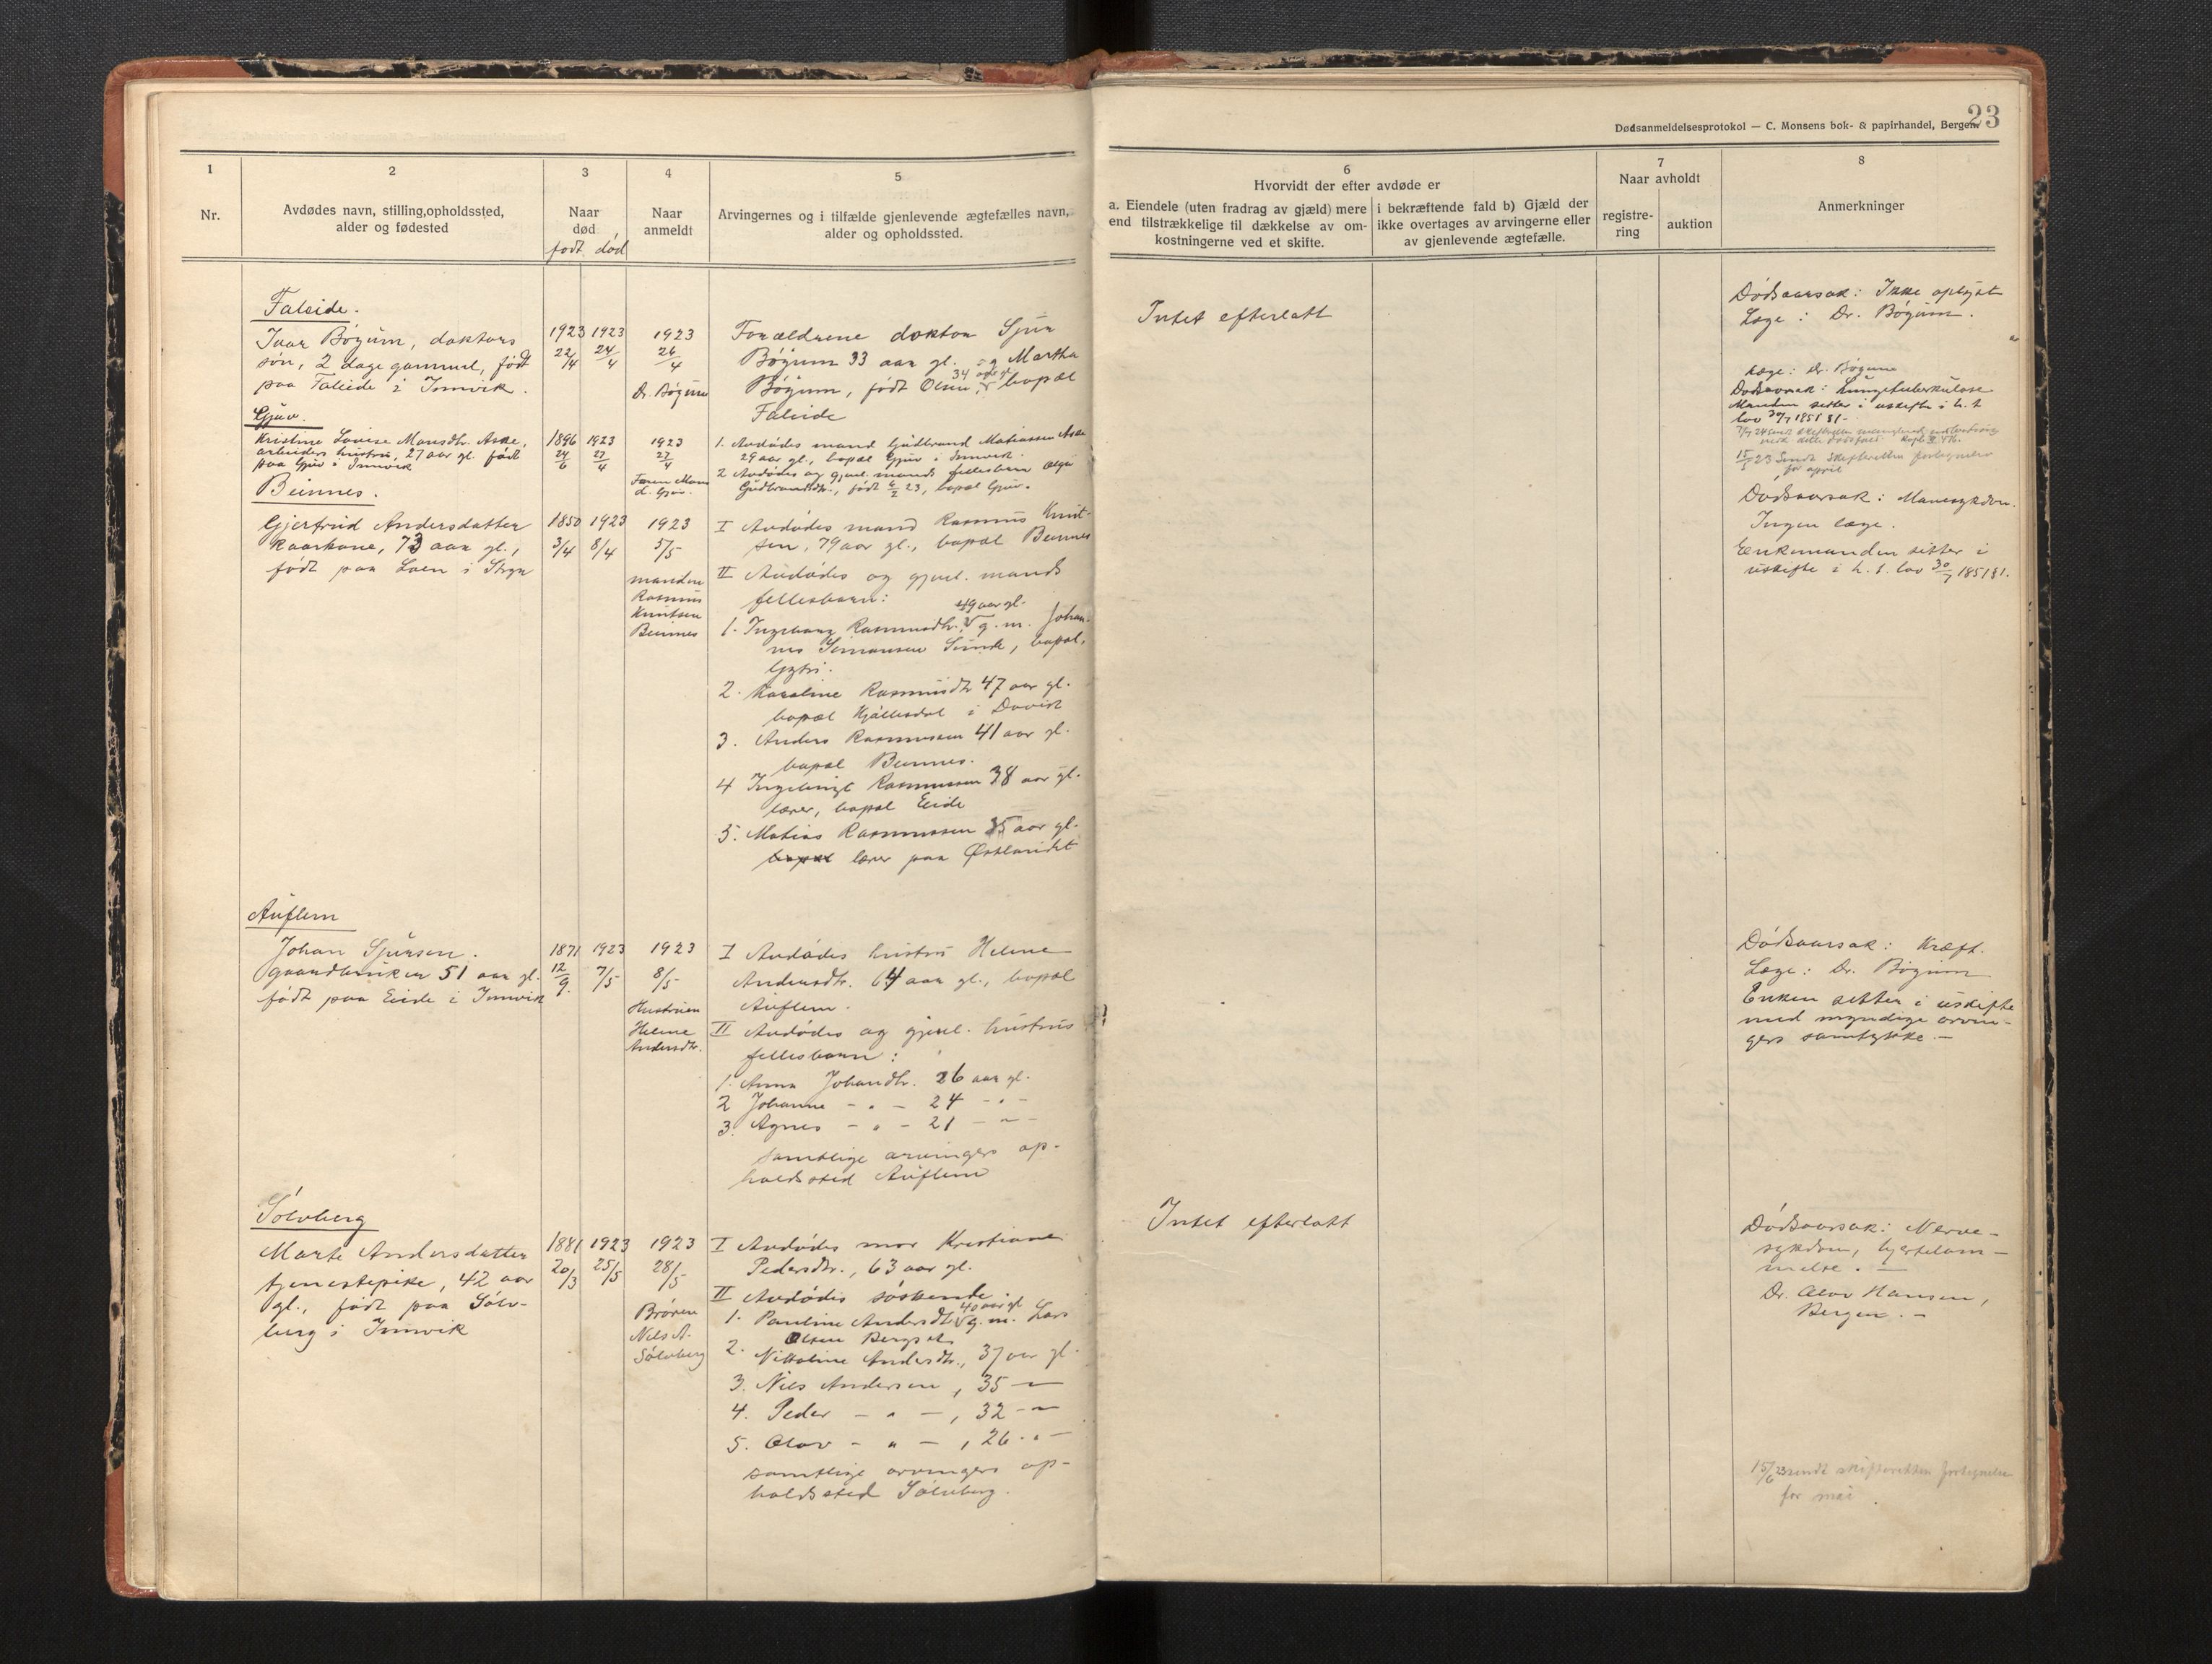 23
Dødsanmeldelsesprotokol — C. Monsens bok- & papirhandel, Bergen.
1
Nr.
2
Avdødes navn, stilling, opholdssted,
alder og fødested
3
Naar
død
født død
4
Naar
anmeldt
5
Arvingernes og i tilfælde gjenlevende ægtefælles navn,
alder og opholdssted.
6
Hvorvidt der efter avdøde er
a. Eiendele (uten fradrag av gjæld) mere
end tilstrækkelige til dækkelse av om-
kostningerne ved et skifte.
i bekræftende fald b) Gjæld der
ikke overtages av arvingerne eller
av gjenlevende ægtefælle.
7
Naar avholdt
registre-
ring
auktion
8
Anmerkninger
Faleide.
Ivar Bøgum, doktors
søn, 2 dage gammel, født
paa Faleide i Innvik.
1923 1923
22/4 24/4
1923
26/4
Dr. Bøgum
Forældrene doktor Sjur
Bøgum 33 aar gl. og Martha
34 aar gl.
Bøgum, født Olsen, bopæl
Faleide
Intet efterlatt
Dødsaarsak: Ikke oplyst
Læge: Dr. Bøgum.
Gjuv.
Kristine Lovise Monsdtr. Aske,
arbeiders hustru, 27 aar gl. født
paa Gjuv i Innvik
1896 1923
24/6 27/4
1923
27/4
Faren Mons
d. Gjuv.
1. Avdødes mand Gudbrand Matiassen Aske
29 aar gl., bopæl Gjuv i Innvik.
2 Avdødes og gjenl. mands fellesbarn Olga
Gudbrandsdtr., født 4/2 23, bopæl Gjuv.
Læge: Dr. Bøgum
Dødsaarsak: Lungetuberkulose
Manden sitter i uskifte i h. t.
lov 30/7 1851 §1-
15/5 23 Sendt Skifteretten fortegnelse
for april
Beinnes.
Gjertrud Andersdatter
kaarkone, 73 aar gl.,
født paa Loen i Stryn
1850 1923
3/4 8/4
1923
5/5
manden
Rasmus
Knutsen
Beinnes
I Avdødes mand Rasmus Knut-
sen, 79 aar gl., bopæl Beinnes
II Avdødes og gjenl. mands
fellesbarn:
49 aar gl.
1. Ingeborg Rasmusdtr. g. m. Johan-
nes Simonsen Sunde, bopæl,
2. Karoline Rasmusdtr 47 aar gl.
bopæl Hjällesdal i Davik
3. Anders Rasmussen 41 aar gl.
bopæl Beinnes.
4 Ingebrigt Rasmussen 38 aar gl.
lærer, bopæl Eide
5. Matias Rasmussen 35 aar gl.
bopæl lærer paa Østlandet
Dødsaarsak: Mavesykdom.
Ingen læge.
Enkemanden sitter i
uskifte i h. t. lov 30/7 1851 §1.
Auflem
Johan Sjursen.
gaardbruker 51 aar gl.
født paa Eide i Innvik
1871 1923
12/9. 7/5
1923
8/5
Hustruen
Helene
Andersdtr.
I Avdødes hustru Helene
Andersdtr. 64 aar gl., bopæl
Auflem.
II Avdødes og gjenl. hustrus
fellesbarn:
1. Anna Johansdtr. 26 aar gl.
2 Johanne - " - 24 - " -
3. Agnes - " - 21 - " -
samtlige arvingers op-
holdssted Auflem
Dødsaarsak: Kræft.
Læge: Dr. Bøgum
Enken sitter i uskifte
med myndige arvin-
gers samtykke. -
Sølvberg
Marte Andersdatter
tjenestepike, 42 aar
gl., født paa Sølv-
berg i Innvik
1881 1923
20/3 25/5
1923
28/5
Broren
Nils A.
Sølvberg
I Avdødes mor Kristiane
Pedersdtr., 63 aar gl.
II Avdødes søskende.
40 aar gl
1. Pauline Andersdtr g. m. Lars
Olsen Bergset
2. Nikoline Andersdtr., 37 aar gl.
3. Nils Andersen, 35 -"-
4. Peder - " -, 32 -"-
5. Olav - " -, 26 -"-
samtlige arvingers op-
holdssted Sølvberg.
Intet efterlatt
Dødsaarsak: Nerve-
sykdom, hjertelam-
melse. -
Dr. Olav Hansen,
Bergen. -
15/6 23 sendt skifteretten fortegnelse
for mai.